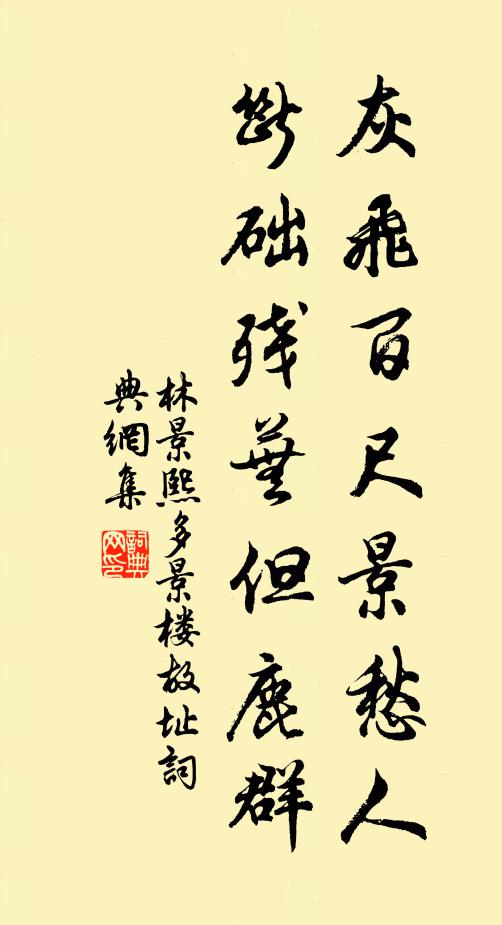 灰飛百尺景愁人
斷础残蕪但鹿群
林景熙多景楼故址詞
典網集
詞典
网印